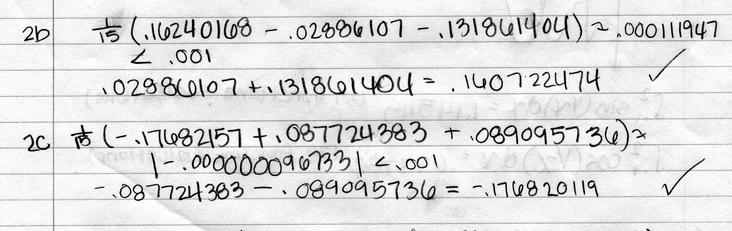 2b 1/15 (.16240168 - .02886107 - .131861404) ≈ .000111947
< .001
.02886107 + .131861404 = .160722474 ✓
2c 1/15 (-.17682157 + .087724383 + .089095736) ≈
|-.000000096733| < .001
-.087724383 - .089095736 = -.176820119 ✓